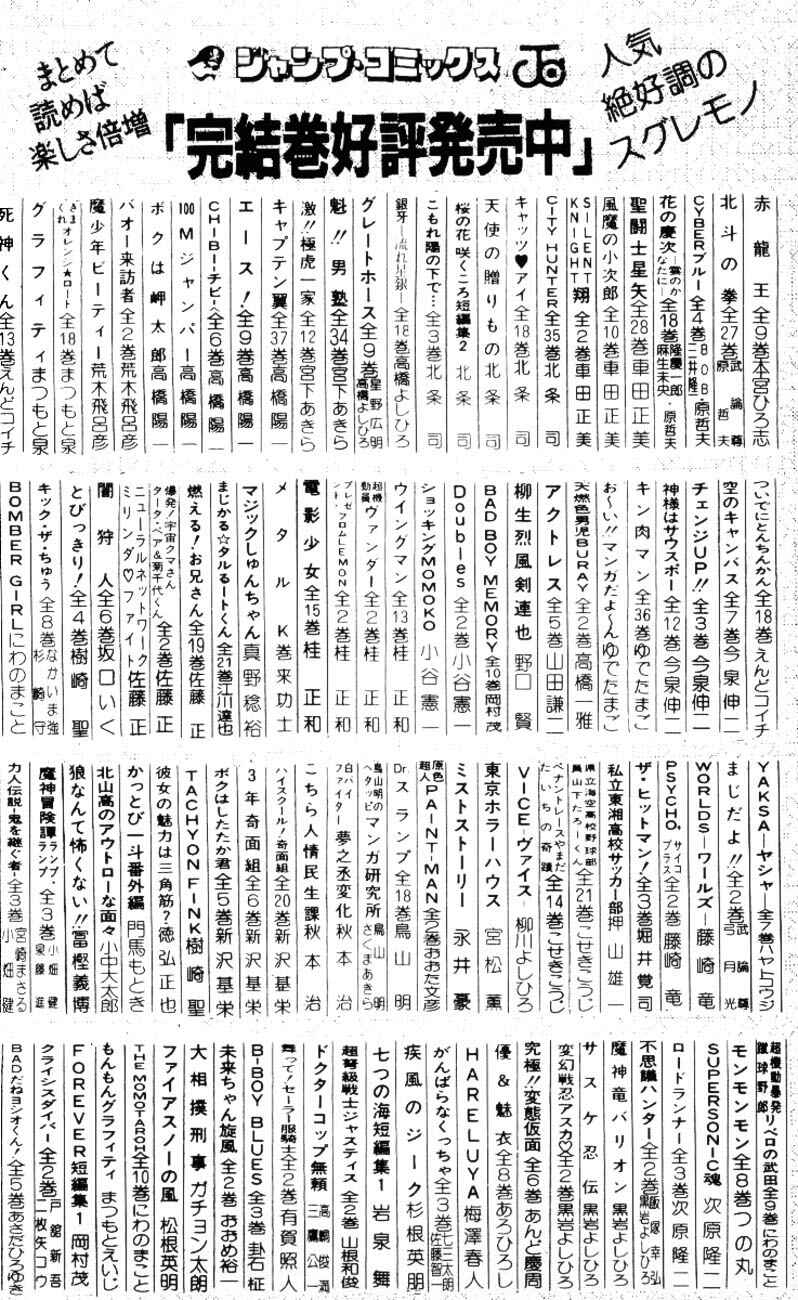 まとめて
読めば
楽しさ倍増
ジャンプ・コミックス
「完結巻好評発売中」
人気
絶好調の
スグレモノ
赤龍王 全9巻 本宮ひろ志
北斗の拳 全27巻 武論尊 原哲夫
CYBERブルー 全4巻 BOB・原哲夫 三井隆一
花の慶次―雲のかなたに― 全18巻 隆慶一郎・原哲夫 麻生未央
聖闘士星矢 全28巻 車田正美
風魔の小次郎 全10巻 車田正美
SILENT KNIGHT翔 全2巻 車田正美
CITY HUNTER 全35巻 北条司
キャッツ♥アイ 全18巻 北条司
天使の贈りもの 北条司
桜の花 咲くころ 短編集2 北条司
こもれ陽の下で… 全3巻 北条司
銀牙―流れ星 銀― 全18巻 高橋よしひろ
グレートホース 全9巻 星野広明 高橋よしひろ
魁!!男塾 全34巻 宮下あきら
激!!極虎一家 全12巻 宮下あきら
キャプテン翼 全37巻 高橋陽一
エース! 全9巻 高橋陽一
CHIBI―チビ― 全6巻 高橋陽一
100Mジャンパー 高橋陽一
ボクは岬太郎 高橋陽一
バオー来訪者 全2巻 荒木飛呂彦
魔少年ビーティー 荒木飛呂彦
きまぐれオレンジ★ロード 全18巻 まつもと泉
グラフィティ まつもと泉
死神くん 全13巻 えんどコイチ
ついでにとんちんかん 全18巻 えんどコイチ
空のキャンバス 全7巻 今泉伸二
チェンジUP!! 全3巻 今泉伸二
神様はサウスポー 全12巻 今泉伸二
キン肉マン 全36巻 ゆでたまご
お〜い!!マンガだよ〜ん ゆでたまご
天燃色男児BURAY 全2巻 高橋一雅
アクトレス 全5巻 山田謙二
柳生烈風剣連也 野口賢
BAD BOY MEMORY 全10巻 岡村茂
Doubles 全2巻 小谷憲一
ショッキングMOMOKO 小谷憲一
ウイングマン 全13巻 桂正和
超機動員ヴァンダー 全2巻 桂正和
プレゼント・フロムLEMON 全2巻 桂正和
電影少女 全15巻 桂正和
メタルK 巻来功士
マジックしゅんちゃん 真野稔裕
まじかる☆タルるートくん 全21巻 江川達也
燃える!お兄さん 全19巻 佐藤正
爆発!宇宙クマさん タータ・ベア&菊千代くん 全2巻 佐藤正
ニューラルネットワーク ミリンダ♡ファイト 佐藤正
闇狩人 全6巻 坂口いく
とびっきり! 全4巻 樹崎聖
キック・ザ・ちゅう 全8巻 なかいま強 杉崎守
BOMBER GIRL にわのまこと
YAKSA―ヤシャ― 全7巻 ハヤトコウジ
まじだよ!! 全2巻 武論尊 弓月光
WORLDS―ワールズ― 藤崎竜
PSYCHO+ サイコプラス 全2巻 藤崎竜
ザ・ヒットマン! 全3巻 堀井覚司
私立東湘高校サッカー部 押山雄一
県立海空高校野球部員山下たろーくん 全21巻 こせきこうじ
ペナントレースやまだたいちの奇蹟 全14巻 こせきこうじ
VICE―ヴァイス― 柳川よしひろ
東京ホラーハウス 宮松薫
ミストストーリー 永井豪
原色超人PAINT―MAN 全2巻 おおた文彦
Dr.スランプ 全18巻 鳥山明
鳥山明のヘタッピマンガ研究所 鳥山明 さくまあきら
白バイファイター 夢之丞変化 秋本治
こちら人情民生課 秋本治
ハイスクール!奇面組 全20巻 新沢基栄
3年奇面組 全6巻 新沢基栄
ボクはしたたか君 全5巻 新沢基栄
TACHYON FINK 樹崎聖
彼女の魅力は三角筋? 徳弘正也
かっとび一斗番外編 門馬もとき
北山高のアウトローな面々 小中大太郎
狼なんて怖くない!! 冨樫義博
魔神冒険譚ランプ・ランプ 全3巻 小畑健 泉藤進
力人伝説―鬼を継ぐ者― 全3巻 宮崎まさる 小畑健
超機動暴発蹴球野郎リベロの武田 全9巻 にわのまこと
モンモンモン 全8巻 つの丸
SUPERSONIC魂 次原隆二
ロードランナー 全3巻 次原隆二
不思議ハンター 全2巻 飯塚幸弘 黒岩よしひろ
魔神竜バリオン 黒岩よしひろ
サスケ忍伝 黒岩よしひろ
変幻戦忍アスカ 全2巻 黒岩よしひろ
究極!!変態仮面 全6巻 あんど慶周
優&魅衣 全8巻 あろひろし
HARELUYA 梅澤春人
がんばらなくっちゃ 全3巻 七三太朗 佐藤智一
疾風のジーク 杉根英朋
七つの海 短編集1 岩泉舞
超弩級戦士ジャスティス 全2巻 山根和俊
ドクターコップ無頼 高嶋俊満 三鷹公一
舞って!セーラー服騎士 全2巻 有賀照人
B・BOY BLUES 全3巻 卦石柾
未来ちゃん旋風 全2巻 おおめ裕一
大相撲刑事 ガチョン太朗
ファイアスノーの風 松根英明
THE MOMOTAROH 全10巻 にわのまこと
もんもんグラフィティ まつもとえいじ
FOREVER 短編集1 岡村茂
クライシスダイバー 全2巻 戸舘新吾 二枚矢コウ
BADだねヨシオくん! 全5巻 あさだひろゆき